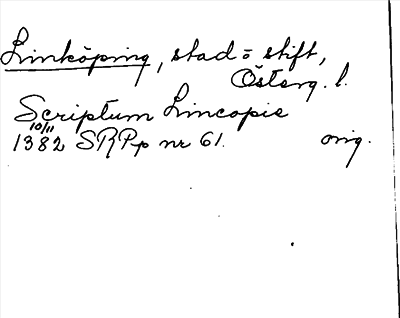 Linköping, stad o stift,
Österg. l.
Scriptum Lincopie
10/11
1382 SRPp nr 61. orig.